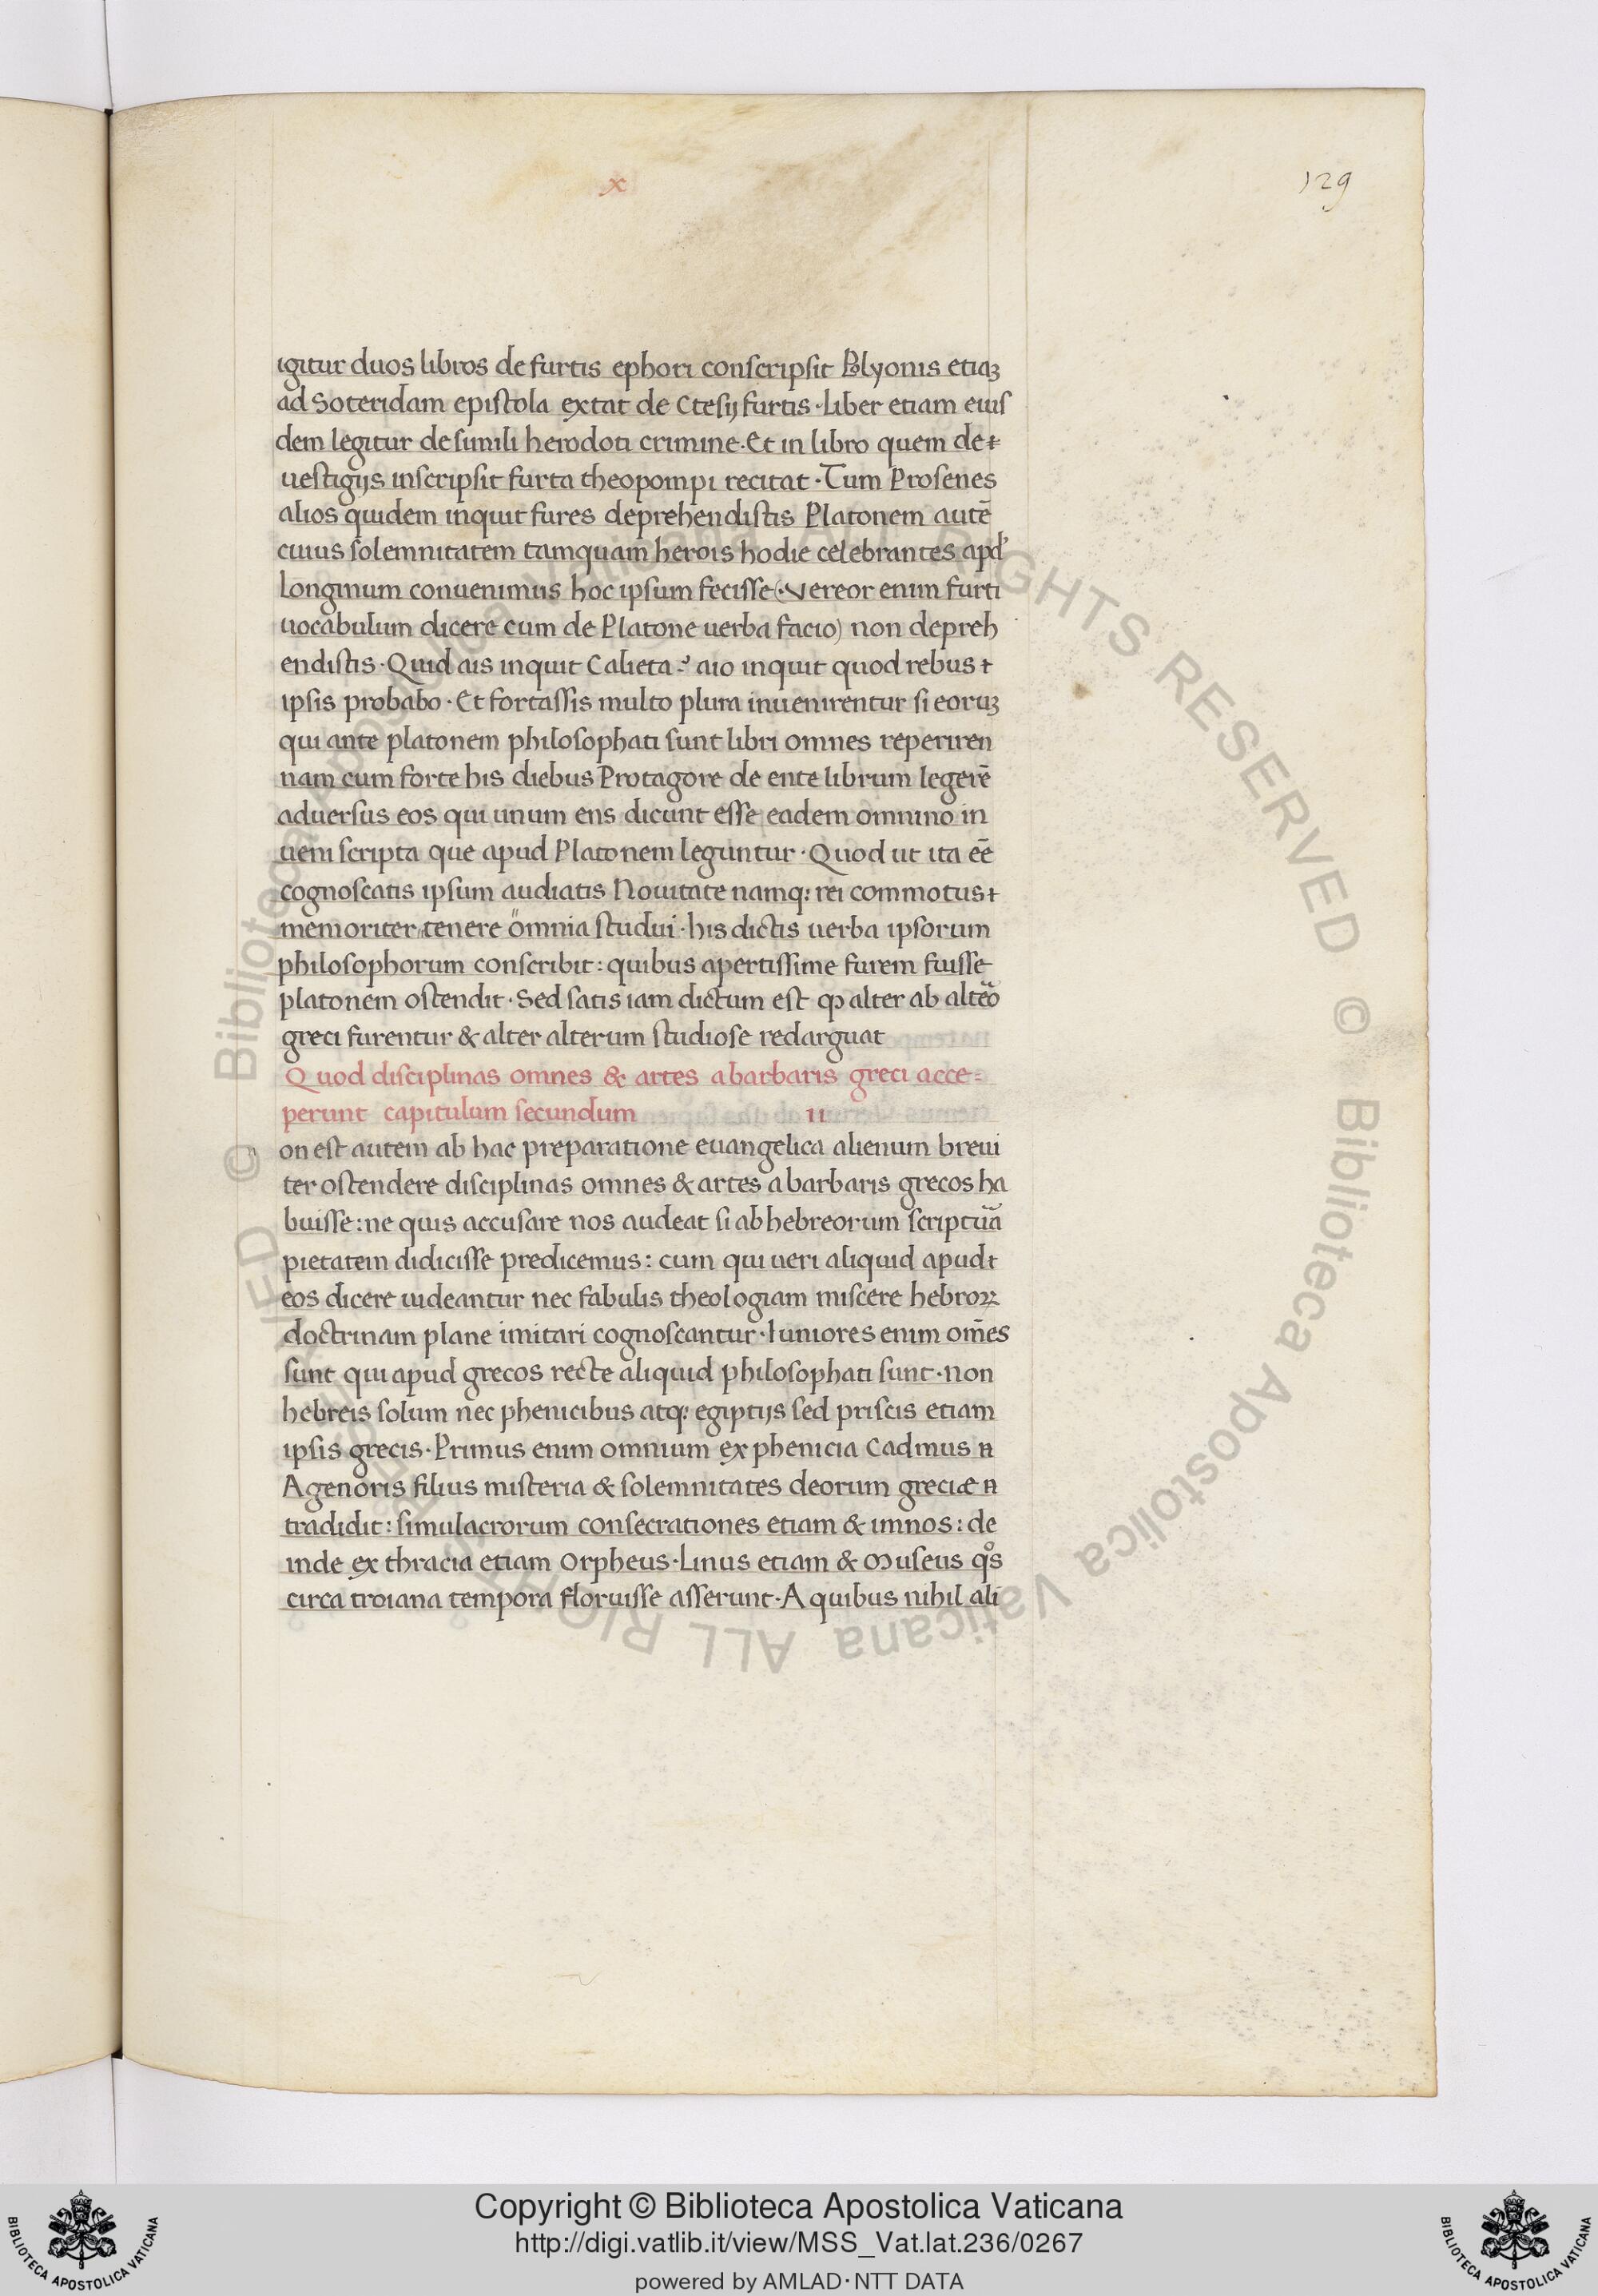 x
129
igitur duos libros de furtis ephori conscripsit Polyonis etiaꝫ
ad Soteridam epistola extat de Ctesij furtis · Liber etiam eius
dem legitur de simili herodoti crimine · Et in libro quem de
uestigijs inscripsit furta theopompi recitat · Tum Prosenes
alios quidem inquit fures deprehendistis Platonem autē
cuius solemnitatem tamquam herois hodie celebrantes apd'
longinum conuenimus hoc ipsum fecisse (· Vereor enim furti
uocabulum dicere cum de Platone uerba facio) non depreh
endistis · Quid ais inquit Calieta ? aio inquit quod rebus
ipsis probabo · Et fortassis multo plura inuenirentur si eoruꝫ
qui ante platonem philosophati sunt libri omnes reperiren
nam cum forte his diebus Protagore de ente librum legerē
aduersus eos qui unum ens dicunt esse eadem omnino in
ueni scripta que apud Platonem leguntur · Quod ut ita eē
cognoscatis ipsum audiatis Nouitate namq: rei commotus
memoriter " tenere "omnia studui · his dictis uerba ipsorum
philosophorum conscribit : quibus apertissime furem fuisse
platonem ostendit · Sed satis iam dictum est ꝙ alter ab alteᵃo
greci furentur & alter alterum studiose redarguat
Quod disciplinas omnes & artes a barbaris greci acce=
perunt capitulum secundum II
n on est autem ab hac preparatione euangelica alienum breui
ter ostendere disciplinas omnes & artes a barbaris grecos ha
buisse : ne quis accusare nos audeat si ab hebreorum scriptuᵃa
pietatem didicisse predicemus : cum qui ueri aliquid apud
eos dicere uideantur nec fabulis theologiam miscere hebroꝝ
doctrinam plane imitari cognoscantur · Iuniores enim om̄es
sunt qui apud grecos recte aliquid philosophati sunt · non
hebreis solum nec phenicibus atq: egiptijs sed priscis etiam
ipsis grecis · Primus enim omnium ex phenicia Cadmus
Agenoris filius misteria & solemnitates deorum greciæ
tradidit : simulacrorum consecrationes etiam & imnos : de
inde ex thracia etiam Orpheus · Linus etiam & Museus qͦs
circa troiana tempora floruisse asserunt · A quibus nihil ali
© Biblioteca Apostolica Vaticana ALL RIGHTS RESERVED © Biblioteca Apostolica Vaticana ALL RIGHTS RESERVED
BIBLIOTECA APOSTOLICA VATICANA
Copyright © Biblioteca Apostolica Vaticana
http://digi.vatlib.it/view/MSS_Vat.lat.236/0267
powered by AMLAD · NTT DATA
BIBLIOTECA APOSTOLICA VATICANA